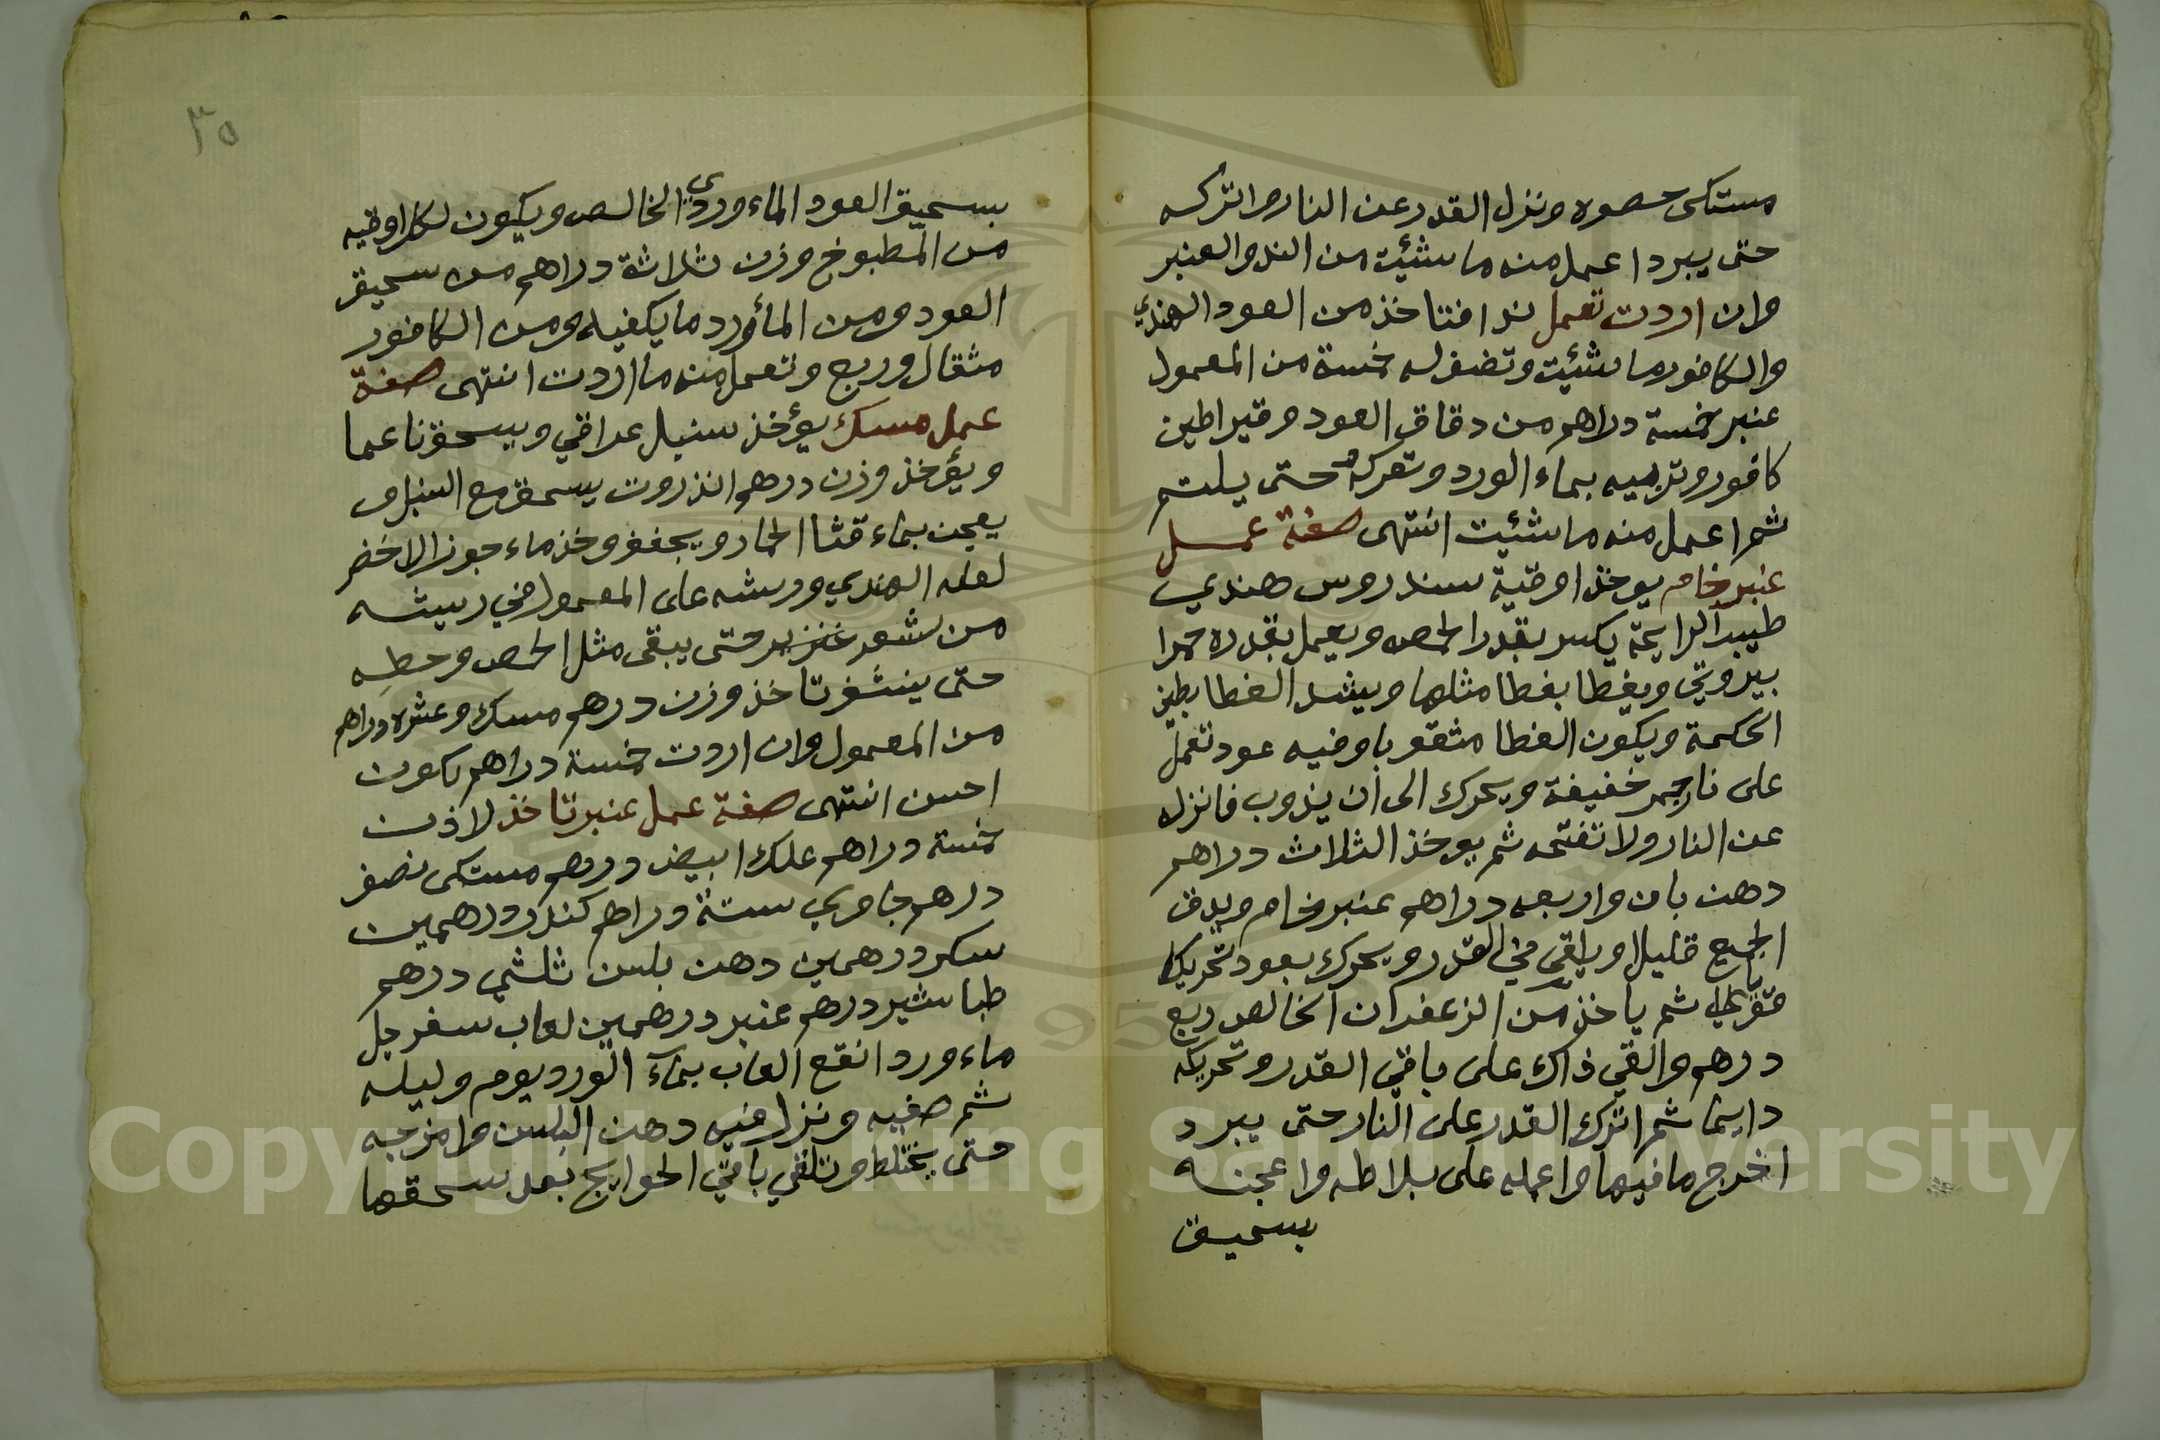 مستكى حصوه ونزل القدر عن النار واتركه
حتى يبرد اعمل منه ما شئيت من الند والعنبر
وان اردت تعمل ندا فتاخذ من العود الهندي
والكافور ما شئيت وتضف له خمسة من المعمول
عنبر خمسة دراهم من دقاق العود وقيراطين
كافور وتربيه بماء الورد وتعركه حتى يلتم
ثم اعمل منه ما شئيت انتهى صفة عمل
عنبر خام يوخذ اوقية سندروس هندي
طيب الرايحة يكسر بقدر الحمص ويعمل بقدره حمرا
بيروتي ويغطا بغطا مثلها ويشد الغطا بطين
الحكمة ويكون الغطا مثقوبا وفيه عود تعمل
على نار جمر خفيفة ويحرك الى ان يذوب فانزله
عن النار ولا تفتحه ثم يوخذ الثلاث دراهم
دهن بان واربعه دراهم عنبر خام ويدق
الجميع قليلا ويلقى في القدر ويحرك بعود تحريكا
قويا ثم ياخذ من الزعفران الخالص ربع
درهم والقي ذاك على باقي القدر وتحريكه
دايما ثم اترك القدر على النار حتى يبرد
اخرج ما فيها واعمله على بلاطه واعجنه
بسحيق
٣٥
بسحيق العود الماء وردي الخالص ويكون لكل اوقيه
من المطبوخ وزن ثلاثة دراهم من سحيق
العود ومن المأورد ما يكفيه ومن الكافور
مثقال وربع وتعمل منه ما اردت انتهى صفة
عمل مسك يؤخذ سنبل عراقي ويسحق ناعما
ويؤخذ وزن درهم انذروت يسحق مع السنبل و
يعجن بماء قثا الحمار ويجفف وخذ ماء جوز الاخضر
لعله الهندي ورشه على المعمول في ريشه
من شعر خنزير حتى يبقى مثل الحمص وحطه
حتى ينشف تاخذ وزن درهم مسك وعشره دراهم
من المعمول وان اردت خمسة دراهم يكون
احسن انتهى صفة عمل عنبر تاخذ لاذن
خمسة دراهم علك ابيض درهم مستكى نصف
درهم جاوي ستة دراهم كندر درهمين
سكر درهمين دهن بلسن ثلثي درهم
طباشير درهم عنبر درهمين لعاب سفرجل
ماء ورد انقع العاب بماء الورد يوم وليله
ثم صفيه ونزل فيه دهن البلسن وامزجه
حتى يختلط وتلقي باقي الحوايج بعد سحقها
Copyright © King Saud University